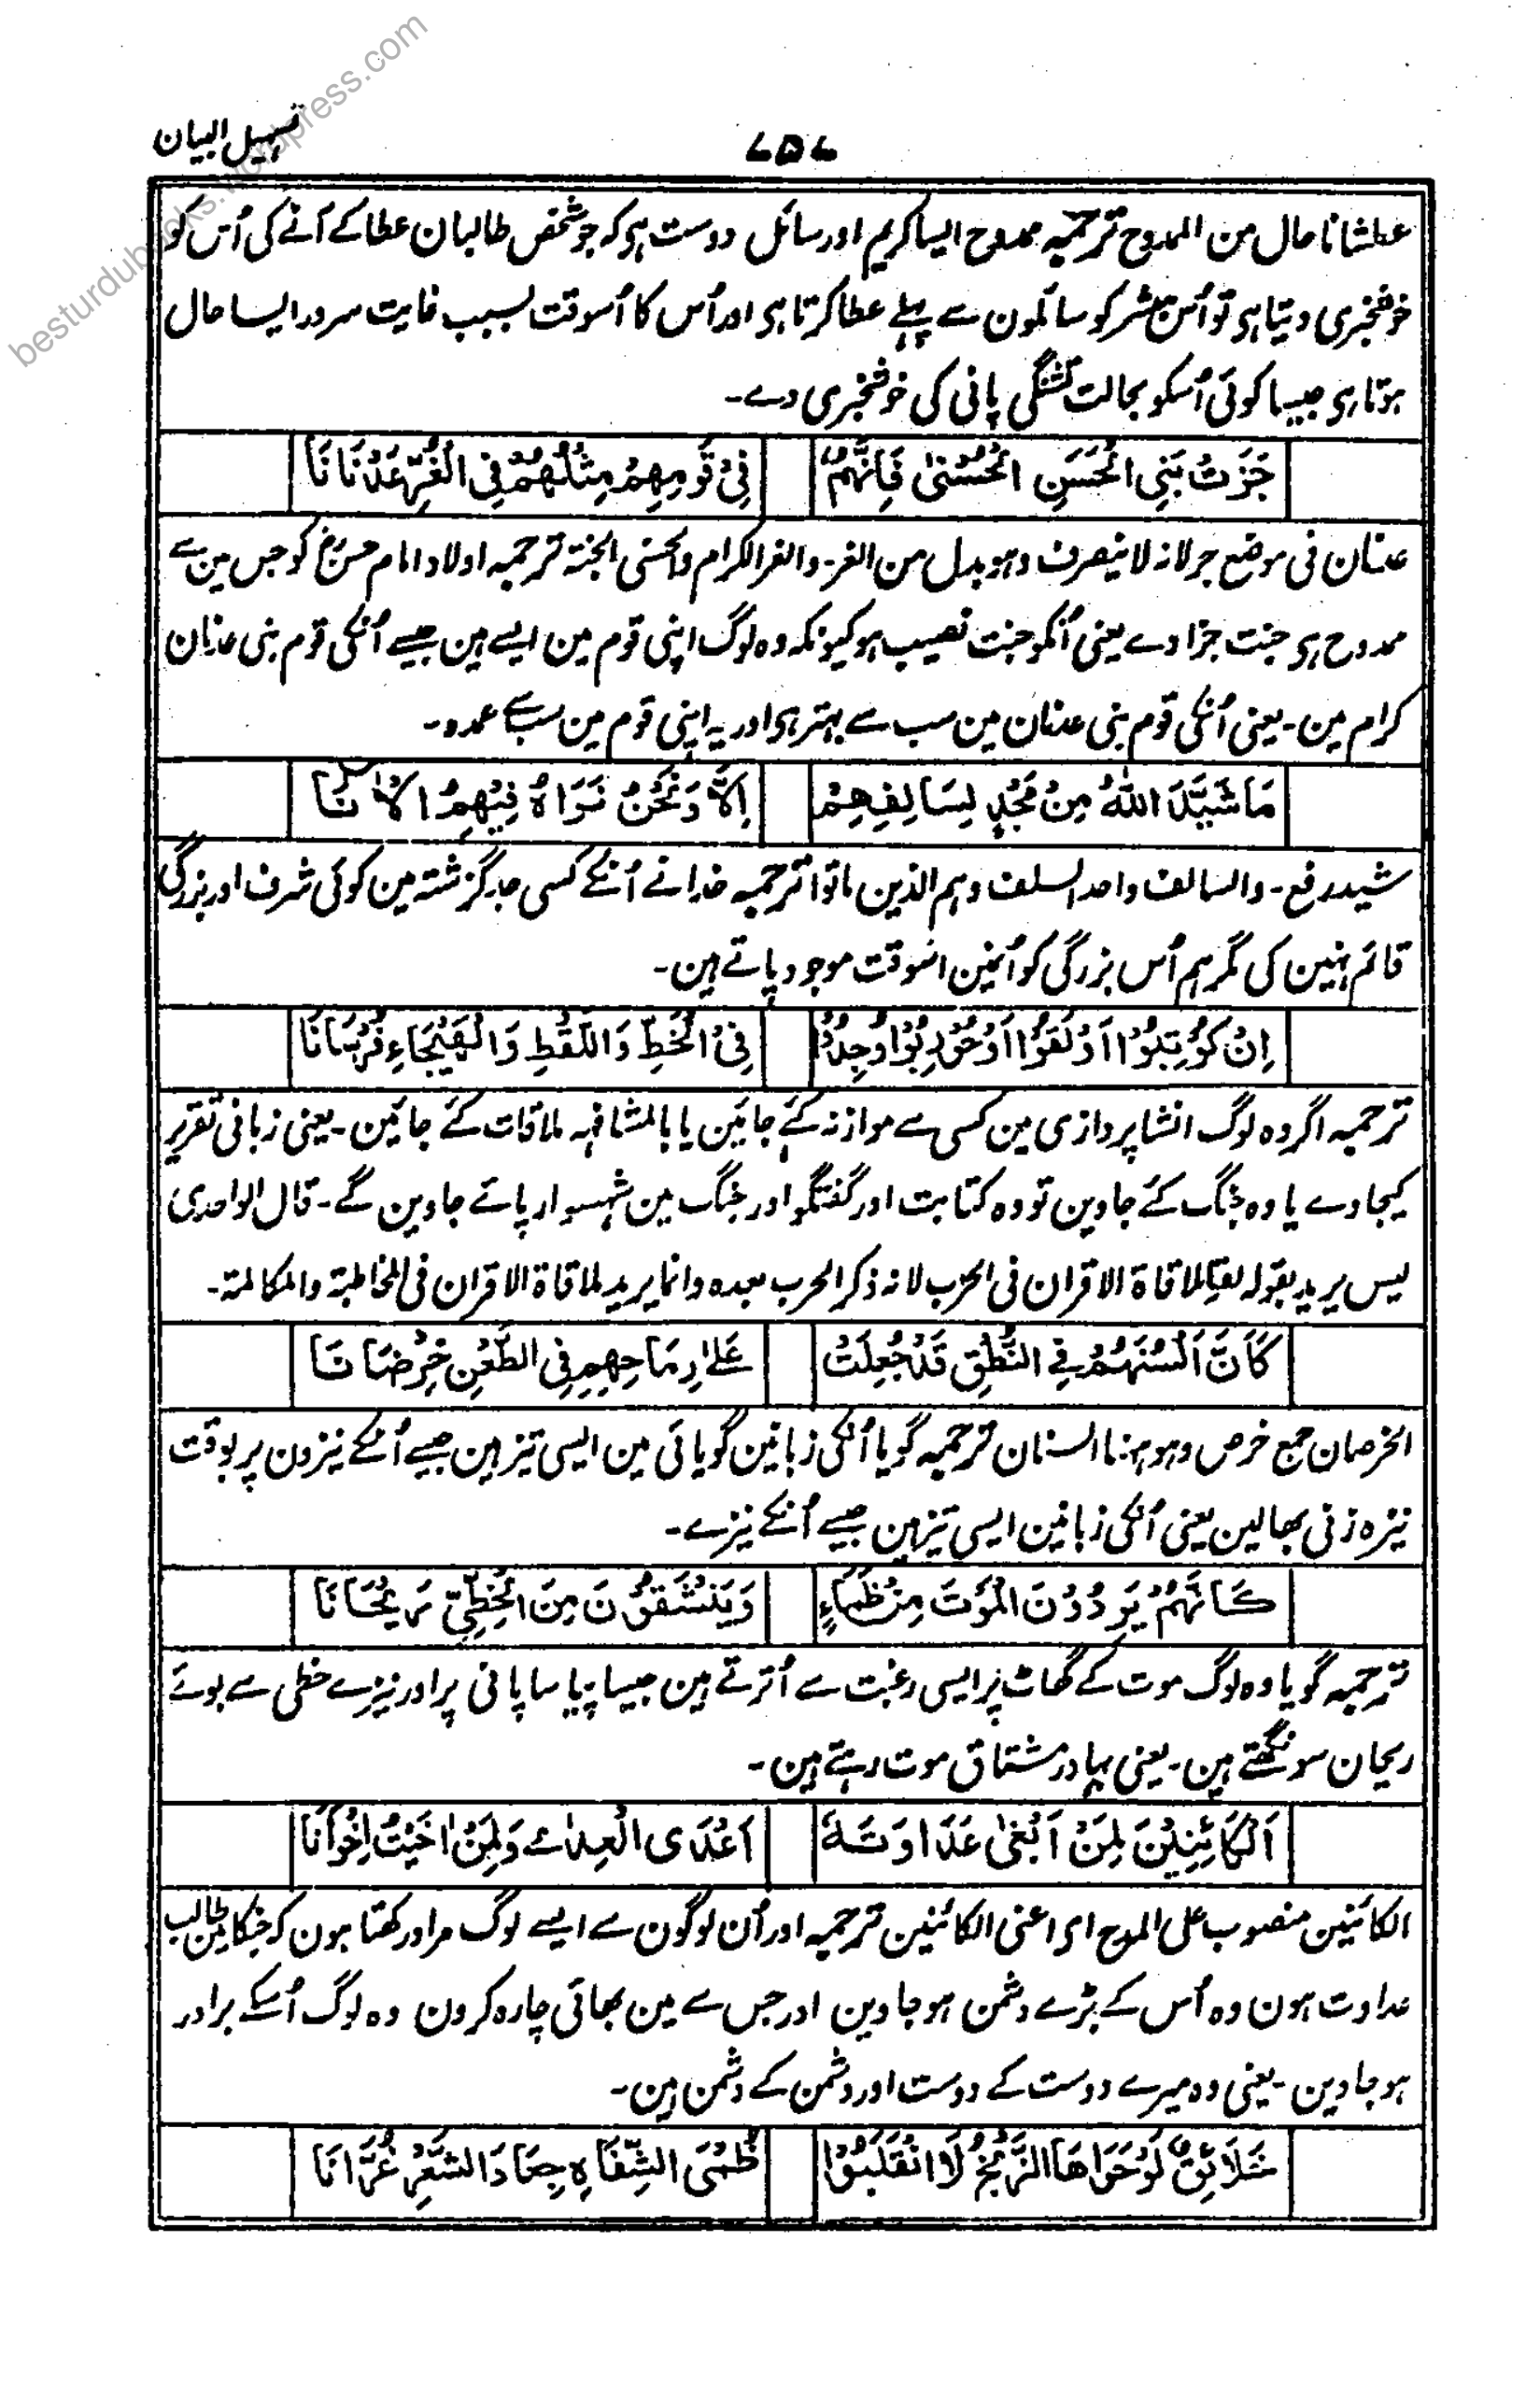 besturdubooks.wordpress.com
تسہیل البیان
۷۵۷
عطشانا حال من الممدوح ترجمیہ ممدوح ایسا کریم اور سائل دوست ہی کہ جو شخص طالبان عطا کے آنے کی اُس کو
خوشخبری دیتا ہی تو اُس مبشر کو سائلون سے پہلے عطا کرتا ہی اور اُس کا اُسوقت بسبب غایت سرور ایسا حال
ہوتا ہی جیسا کوئی اُسکو بحالت تشنگی پانی کی خوشخبری دے۔
جَزَتْ بَنِي الْحَسَنِ الْحُسْنىٰ فَاِنَّهُمْ فِيْ قَوْمِهِمْ مِثْلُهُمْ فِي الْغُرِّ عَدْنَانَا
عدنان فی موضع جر لانہ لا ینصرف وہو بدل من الغر۔ والغر الکرام والحسنی الجنۃ ترجمیہ اولاد امام حسنؓ کو جس مین سے
ممدوح ہی جنت جزا دے یعنی اُنکو جنت نصیب ہو کیونکہ وہ لوگ اپنی قوم مین ایسے ہین جیسے اُنکی قوم بنی عدنان
کرام مین۔ یعنی اُنکی قوم بنی عدنان مین سب سے بہتر ہی اور یہ اپنی قوم مین سب سے عمدہ۔
مَا شَيَّدَ اللهُ مِنْ مَجْدٍ لِسَالِفِهِمْ اِلَّا وَنَحْنُ نَرَاهُ فِيْهِمُ الْاٰنَا
شیدرفع۔ والسالف واحد السلف وہم الذین ماتوا ترجمیہ خدا نے اُنکے کسی جد گزشتہ مین کوئی شرف اور بزرگی
قائم نہین کی مگر ہم اُس بزرگی کو اُنمین اسوقت موجود پاتے ہین۔
اِنْ كُوْتِبُوْا اَوْ لَقُوْا اَوْ حُوْرِبُوْا وُجِدُوْا فِيْ الْخَطِّ وَاللَّفْظِ وَالْهَيْجَاءِ فُرْسَانَا
ترجمیہ اگر وہ لوگ انشا پردازی مین کسی سے موازنہ کئے جائین یا بالمشافہہ ملاقات کئے جائین۔ یعنی زبانی تقریر
کیجاوے یا وہ جنگ کئے جاوین تو وہ کتابت اور گفتگو اور جنگ مین شہسوار پائے جاوین گے۔ قال الواحدی
لیس یرید بقولہ لقوا ملاقاة الاقران فی الحرب لانہ ذکر الحرب بعدہ وانما یرید ملاقاة الاقران فی المخاطبۃ والمکالمۃ۔
كَاَنَّ اَلْسُنَهُمْ فِي النُّطْقِ قَدْ جُعِلَتْ عَلىٰ رِمَاحِهِمِ فِي الطَّعْنِ خِرْصَانَا
الخرصان جمع خرص وہو ہہنا السنان ترجمیہ گویا اُنکی زبانین گویائی مین ایسی تیز ہین جیسے اُنکے نیزون پر بوقت
نیزہ زنی بھالین یعنی اُنکی زبانین ایسی تیز ہین جیسے اُنکے نیزے۔
كَاَنَّهُمْ يَرِدُوْنَ الْمَوْتَ مِنْ ظَمَاءٍ وَيَنْشَقُوْنَ مِنَ الْخَطِّيِّ رَيْحَانَا
ترجمیہ گویا وہ لوگ موت کے گھاٹ پر ایسی رغبت سے اُترتے ہین جیسا پیاسا پانی پر اور نیزے خطی سے بوئے
ریحان سونگھتے ہین۔ یعنی بہادر مشتاق موت رہتے ہین۔
اَلْكَائِنِيْنَ لِمَنْ اَبْغىٰ عَدَاوَتَهٗ اَعْدَى الْعِدَاءِ وَلِمَنْ اٰخَيْتُ اِخْوَانَا
الکائنین منصوب علی المدح ای اعنی الکائنین ترجمیہ اور اُن لوگون سے ایسے لوگ مراد رکھتا ہون کہ جنکا مین طالب
عداوت ہون وہ اُس کے بڑے دشمن ہو جاوین اور جس سے مین بھائی چارہ کرون وہ لوگ اُسکے برادر
ہو جاوین۔ یعنی وہ میرے دوست کے دوست اور دشمن کے دشمن ہین۔
خَلَائِقٌ لَوْ حَوَاهَا الزَّنْجُ لَانْقَلَبُوْا ظُمْىَ الشِّفَاهِ جِعَادَ الشَّعْرِ غُرَّانَا